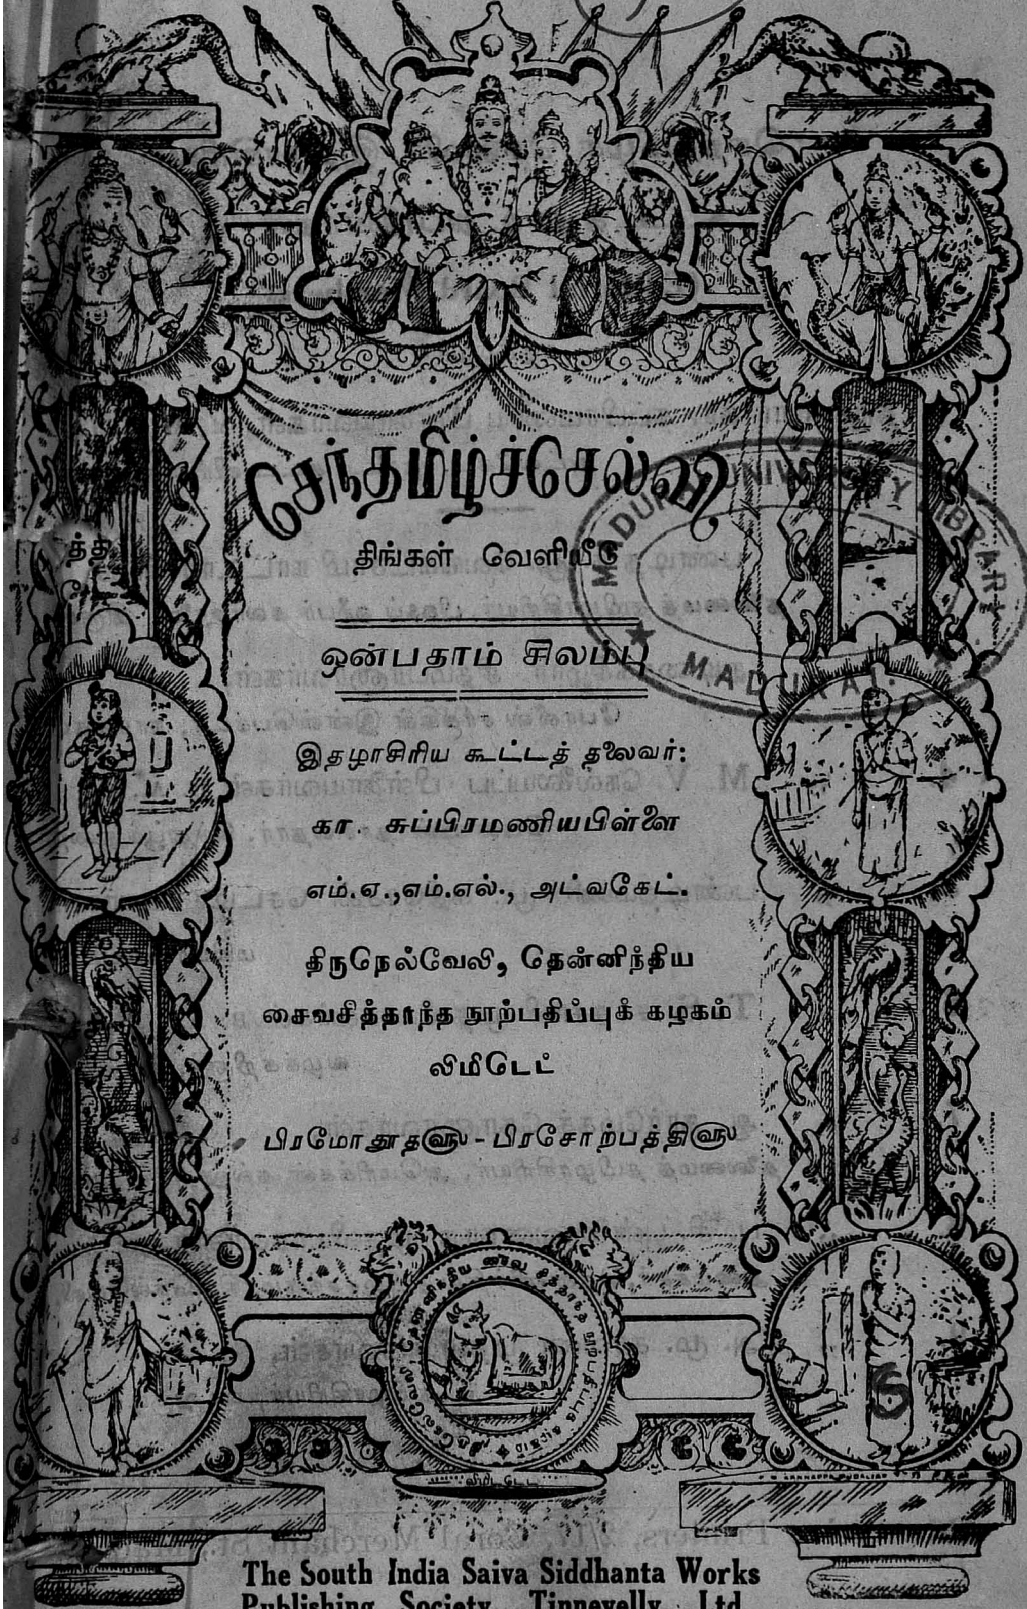 செந்தமிழ்ச்செல்வி
திங்கள் வெளியீடு
ஒன்பதாம் சிலம்பு
இதழாசிரிய கூட்டத் தலைவர்:
கா. சுப்பிரமணியபிள்ளை
எம்.ஏ.,எம்.எல்., அட்வகேட்.
திருநெல்வேலி, தென்னிந்திய
சைவசித்தாந்த நூற்பதிப்புக் கழகம்
லிமிடெட்
பிரமோதூத௵ - பிரசோற்பத்தி௵
MADURAI UNIVERSITY LIBRARY
MADURAI.
திருநெல்வேலி, தென்னிந்திய சைவ சித்தாந்த நூற்பதிப்புக் கழகம்
லிமிடெட்
6
The South India Saiva Siddhanta Works
Publishing Society, Tinnevelly, Ltd.